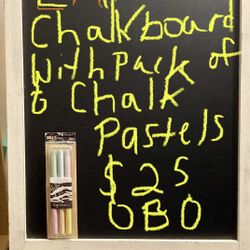 Chalkboard
with pack of
6 Chalk
Pastels
$25
OBO